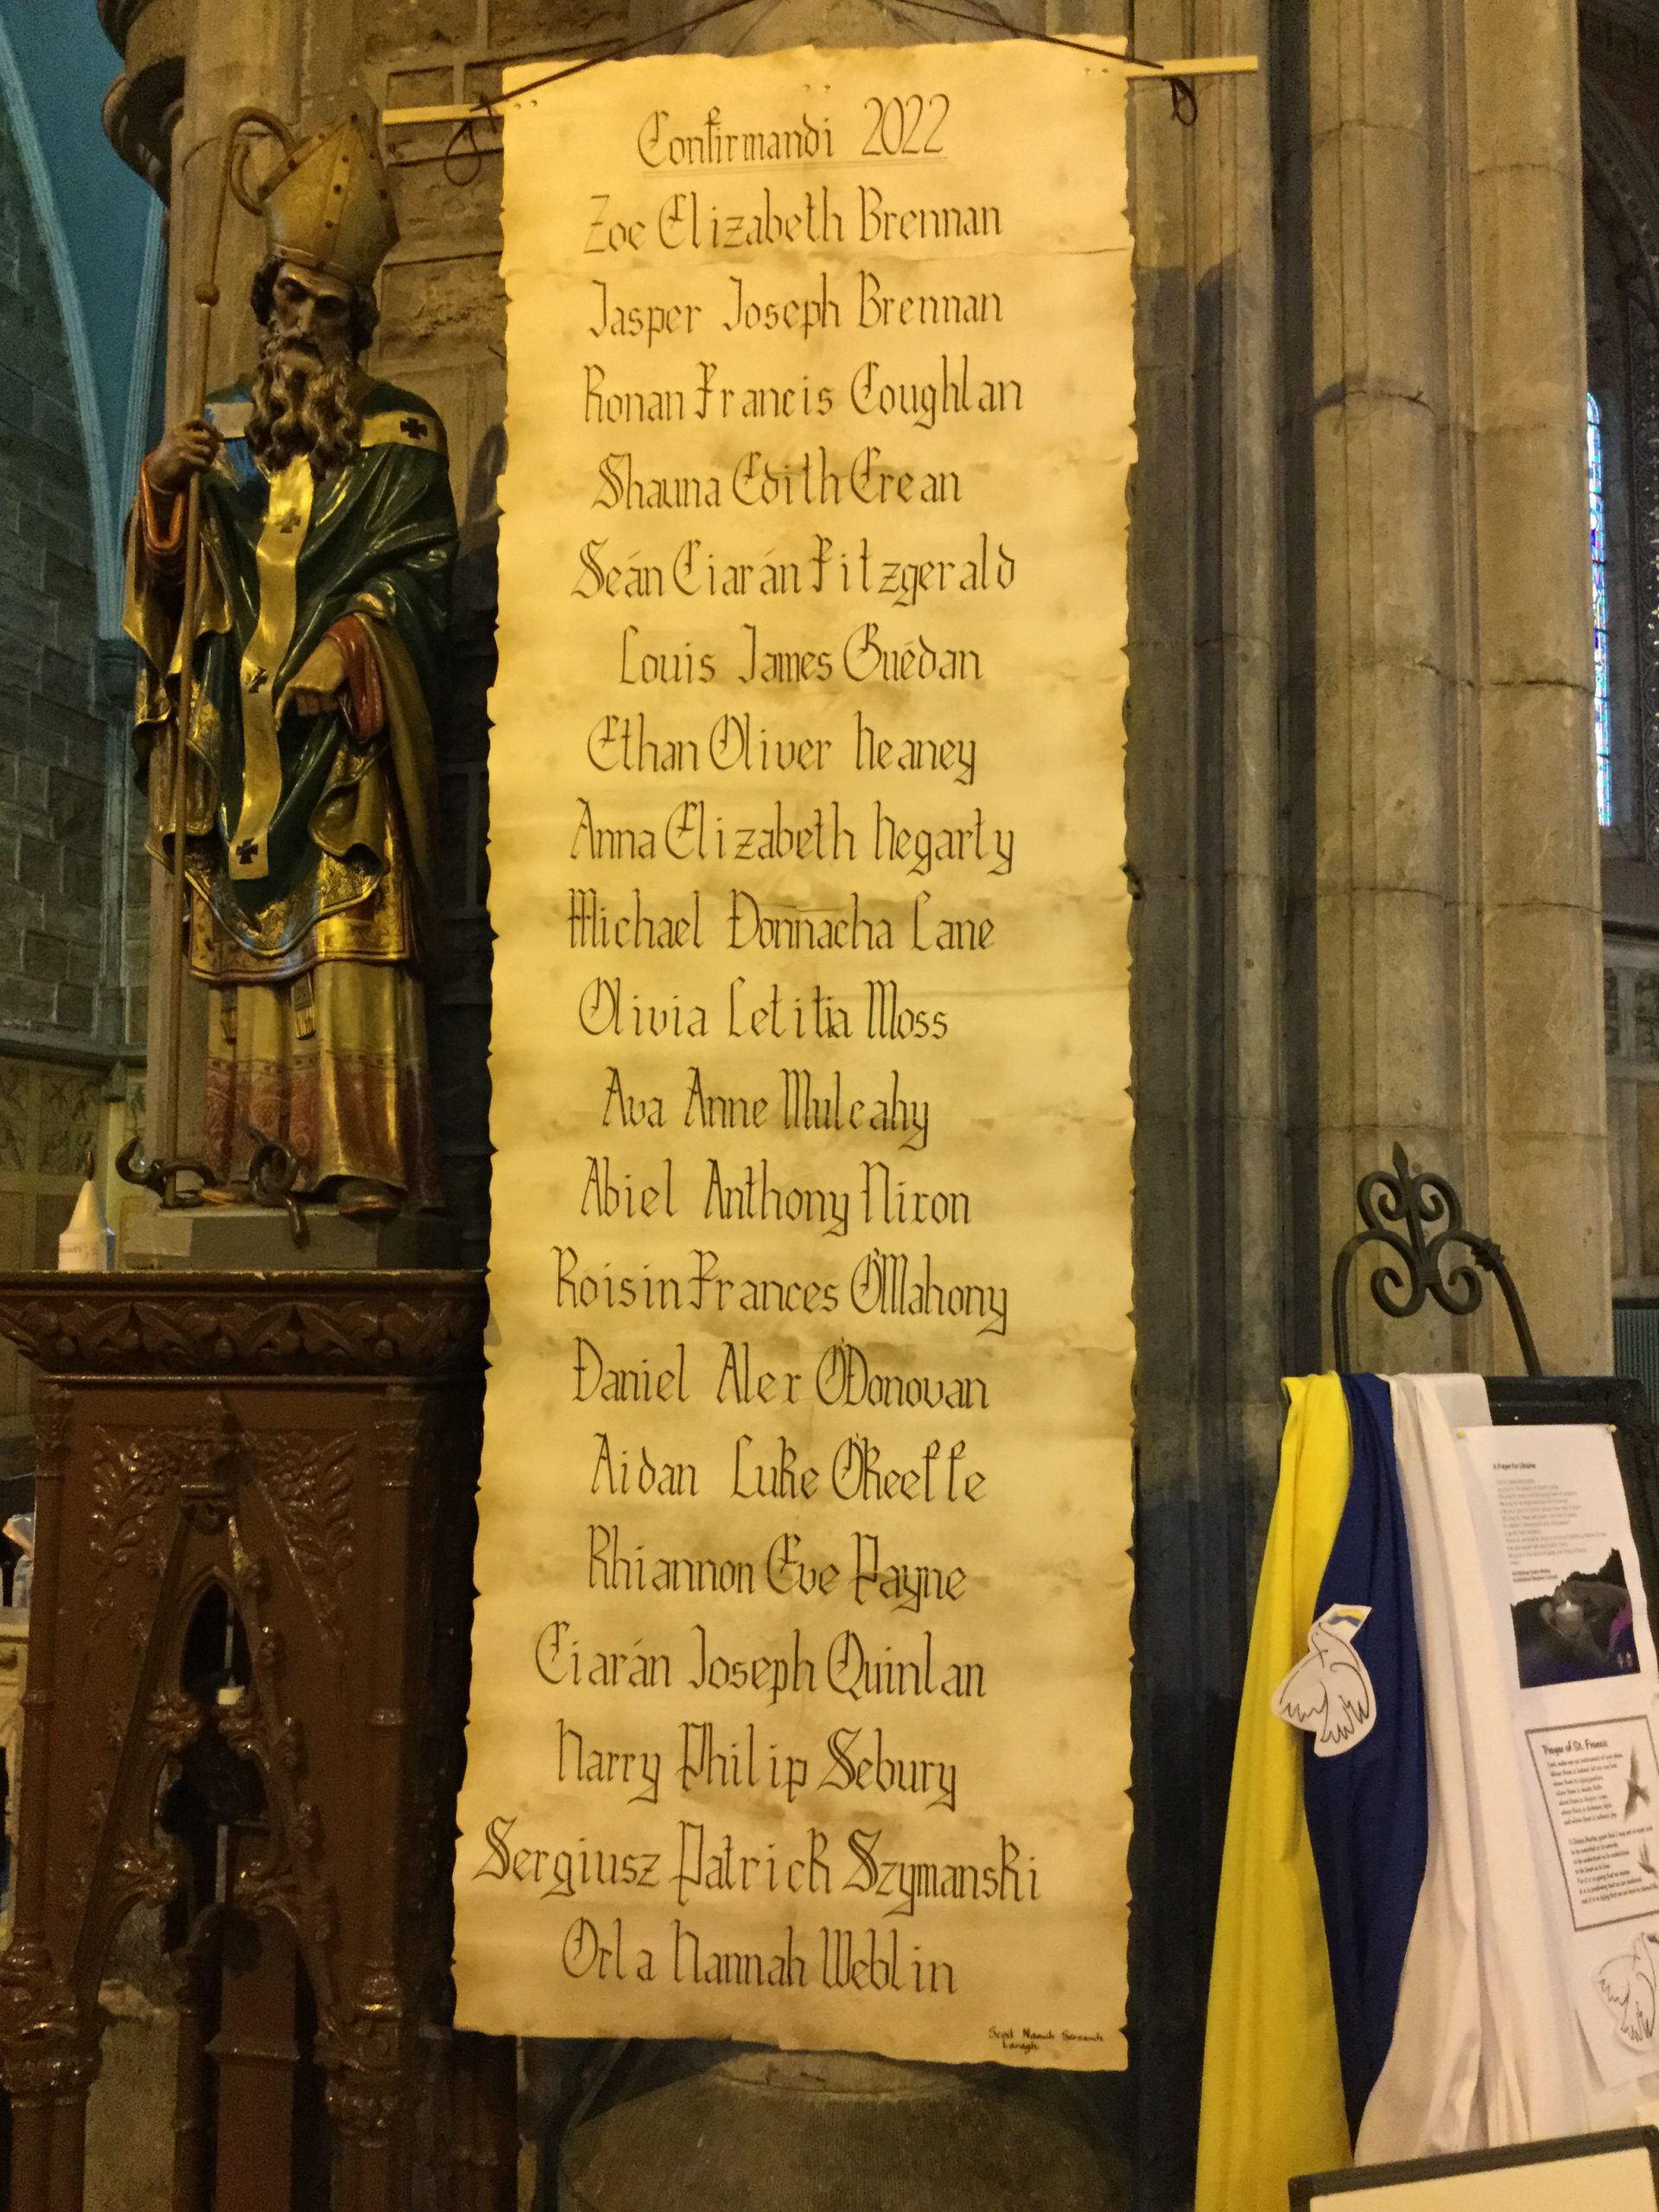 Confirmandi 2022
Zoe Elizabeth Brennan
Jasper Joseph Brennan
Ronan Francis Coughlan
Shauna Edith Crean
Seán Ciarán Fitzgerald
Louis James Guédan
Ethan Oliver Heaney
Anna Elizabeth Hegarty
Michael Donnacha Lane
Olivia Letitia Moss
Ava Anne Mulcahy
Abiel Anthony Nixon
Roisin Frances O'Mahony
Daniel Alex O'Donovan
Aidan Luke O'Keeffe
Rhiannon Eve Payne
Ciarán Joseph Quinlan
Harry Philip Sebury
Sergiusz Patrick Szymanski
Orla Hannah Weblin
Scoil Naomh
A Prayer for Ukraine
Prayer of St. Francis